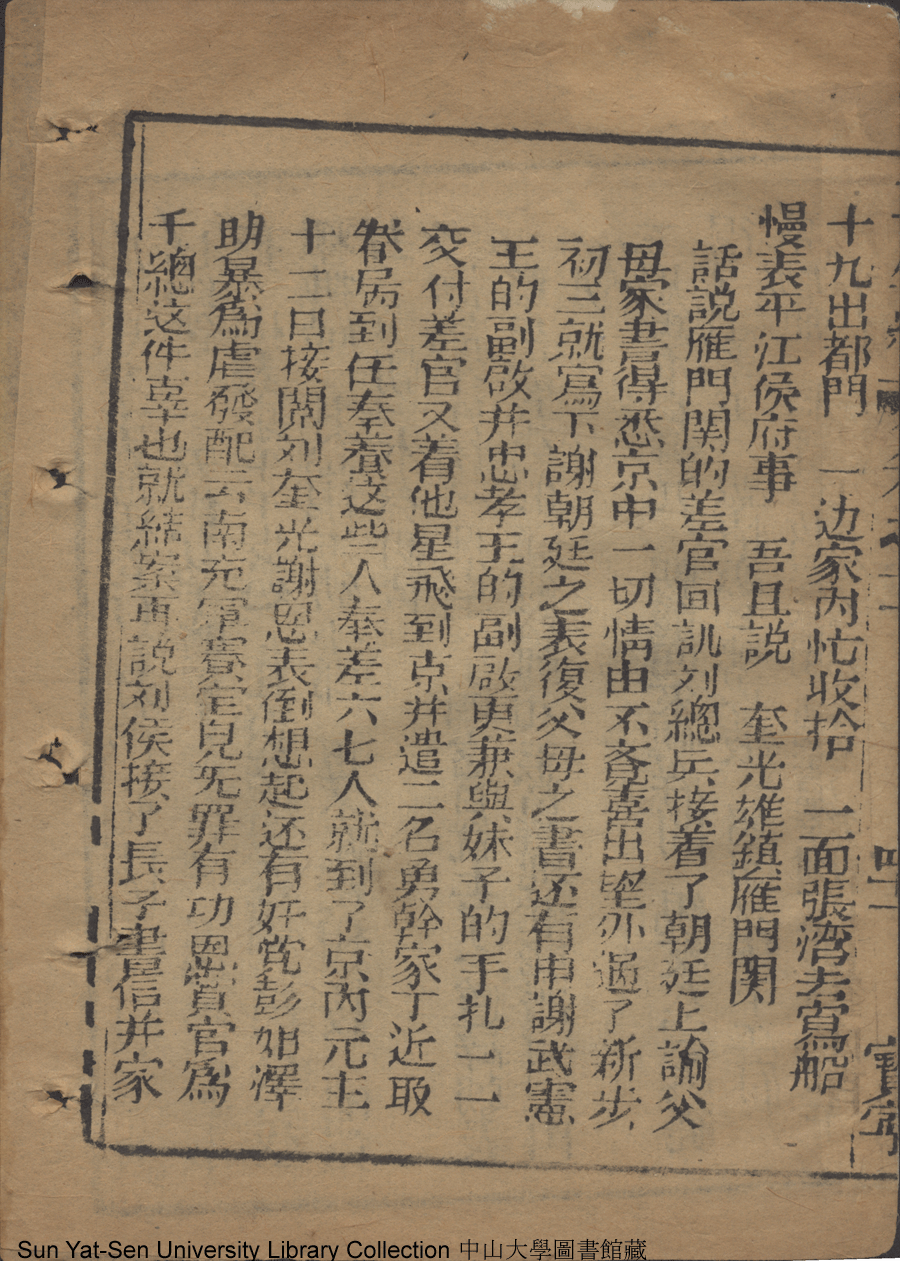 十九出都門　一边家內忙收拾　一面張湾去寫船
慢表平江侯府事　吾且説　奎光雄鎮雁門関
話説雁門関的差官回訊刘總兵接着了朝廷上諭父
母家書得悉京中一切情由不覔喜出望外過了新步
初三就寫下謝朝廷之表復父母之書还有申謝武憲
王的副啟并忠孝王的副啟更兼與妹子的手扎一一
交付差官又着他星飛到京并遣二名勇幹家丁近取
眷居到任奉養这些人奉差六七人就到了京內元主
十二日接閱刘奎光謝恩表倒想起还有奸党彭如澤
助暴爲虐發配云南充軍賽宝兒死罪有功恩賞官爲
千總这件事也就結案再説刘侯接了長子書信并家
四十一
寳寧
Sun Yat-Sen University Library Collection 中山大學圖書館藏